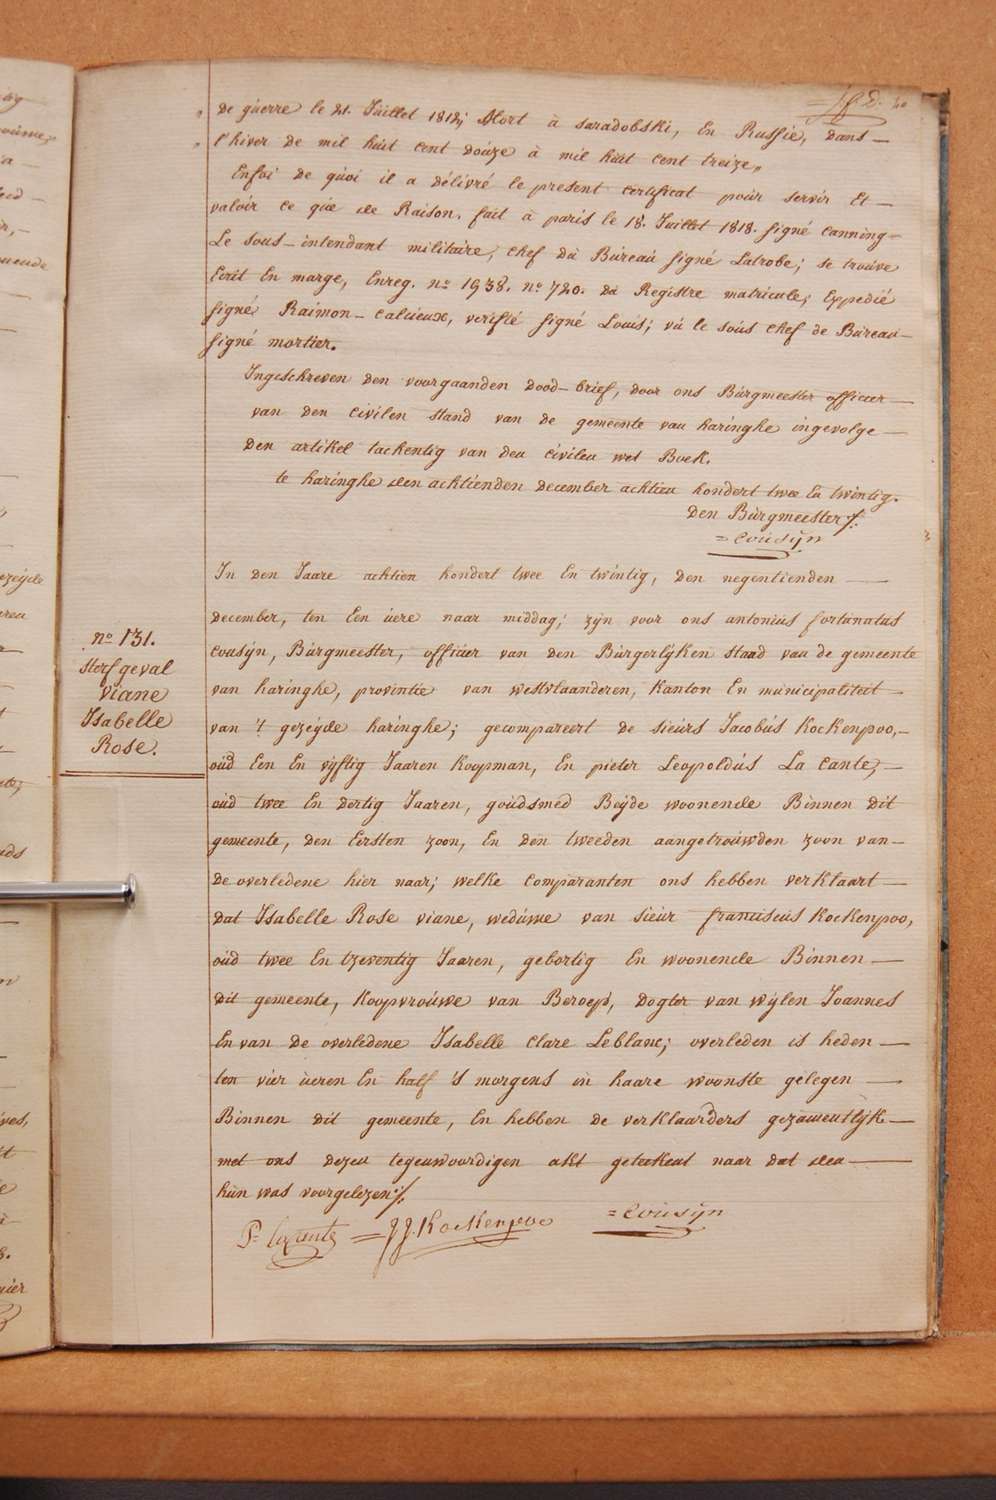 de guerre le 21. Juillet 1812; Mort à saradobski, En Russie, dans —
l'hiver de mil huit cent douze à mil huit cent treize,,
Enfoi de quoi il a délivré le present certificat pour servir Et —
valoir ce que de Raison. fait à paris le 18. Juillet 1818. signé canning —
Le sous-intendant militaire, chef du Bureau signé Latrobe; se trouve
Ecrit En marge, Enreg. no 1938. no 720. du Registre matricule; Expedié
signé Raimon - calcieux, verifié signé Louis; vu le sous chef de Bureau —
signé mortier.
Ingeschreven den voorgaanden dood-brief, door ons Burgmeester officier —
van den civilen stand van de gemeente van haringhe ingevolge —
den artikel tachentig van den civilen wet Boek.
te haringhe den achtienden december achtien hondert twee En twintig.
den Burgmeester ⁒
= Cousijn
no 131.
sterfgeval
viane
Isabelle
Rose.
In den Jaare achtien hondert twee En twintig, den negentienden —
december, ten Een uere naar middag; zijn voor ons antonius fortunatus
cousijn, Burgmeester, officier van den Burgerlyken staad van de gemeente
van haringhe, provintie van westvlaanderen, Kanton En municipaliteit —
van 't gezeijde haringhe; gecompareert de sieurs Jacobus Kockenpoo, —
oud Een En vyftig Jaaren Koopman, En pieter Leopoldus La cante, —
oud twee En dertig Jaaren, goudsmed Beijde woonende Binnen dit
gemeente, den Eersten zoon, En den tweeden aangetrouwden zoon van —
de overledene hier naar; welke comparanten ons hebben verklaart —
dat Isabelle Rose viane, weduwe van sieur franciscus Kockenpoo,
oud twee En tzeventig Jaaren, gebortig En woonende Binnen —
dit gemeente, Koopvrouwe van Beroep, dogter van wylen Joannes
En van de overledene Isabelle Clare Leblanc; overleden is heden —
ten vier ueren En half 's morgens in haare woonste gelegen —
Binnen dit gemeente, En hebben de verklaarders gezamentlyk —
met ons dezen tegenwoordigen akt geteekent naar dat den —
hun was voorgelezen ⁒
P= lacante = J J. Kockenpoo = Cousijn